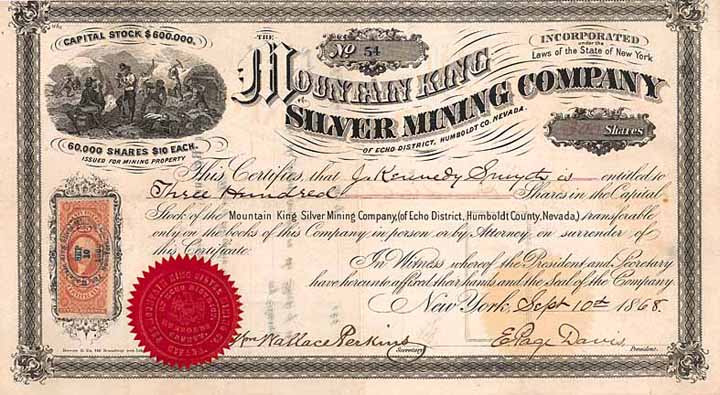 CAPITAL STOCK $600,000.
60,000 SHARES $10 EACH.
ISSUED FOR MINING PROPERTY
No 54
INCORPORATED
under the
Laws of the State of New York
THE
MOUNTAIN KING
SILVER MINING COMPANY
OF ECHO DISTRICT, HUMBOLDT CO. NEVADA.
Shares
This Certifies, that J. Kennedy Smyth is entitled to
Three Hundred Shares in the Capital
Stock of the Mountain King Silver Mining Company, (of Echo District, Humboldt County, Nevada,) transferable
only on the books of this Company in person or by Attorney on surrender of
this Certificate.
In Witness whereof the President and Secretary
have hereunto affixed their hands and the Seal of the Company.
New York, Sept 10th 1868.
Wm Wallace Perkins
Secretary
E. Page Davis
President.